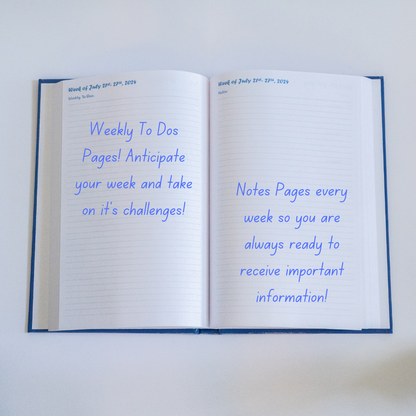 Week of July 21st- 27th, 2024
Weekly To Dos:
Weekly To Dos
Pages! Anticipate
your week and take
on it's challenges!
Week of July 21st- 27th, 2024
Notes:
Notes Pages every
week so you are
always ready to
receive important
information!